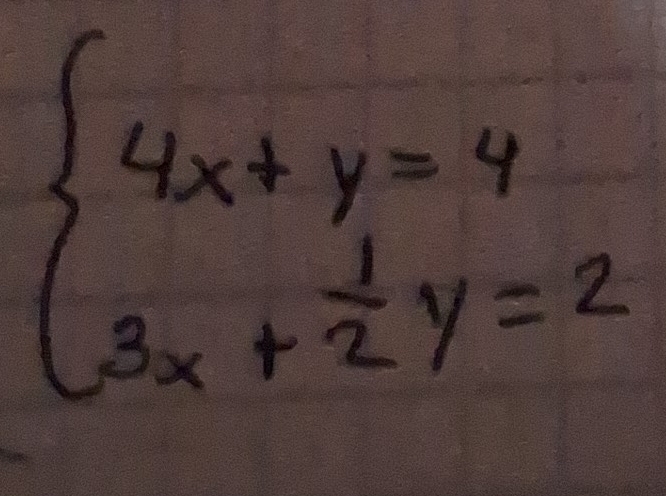 4x + y = 4
3x + 1/2 y = 2